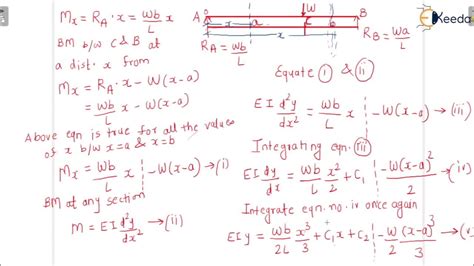 M_x = R_A · x = Wb/L x
BM b/w C & B at
a dist. x from
M_x = R_A · x - W(x-a)
= Wb/L x - W(x-a)
Above eqn is true for all the values
of x b/w x=a & x=b
M_x = Wb/L x ¦ - W(x-a) → (i)
BM at any section
M = EI d²y/dx² → (ii)
A W B
x a C b
R_A = Wb/L R_B = Wa/L
Ekeeda
Equate (i) & (ii)
EI d²y/dx² = Wb/L x ¦ - W(x-a) → (iii)
Integrating eqn. (iii)
EI dy/dx = Wb/L x²/2 + C₁ ¦ - W(x-a)²/2 → (iv)
Integrate eqn. no. iv once again
EIy = Wb/2L x³/3 + C₁x + C₂ ¦ - W/2 (x-a)³/3 →